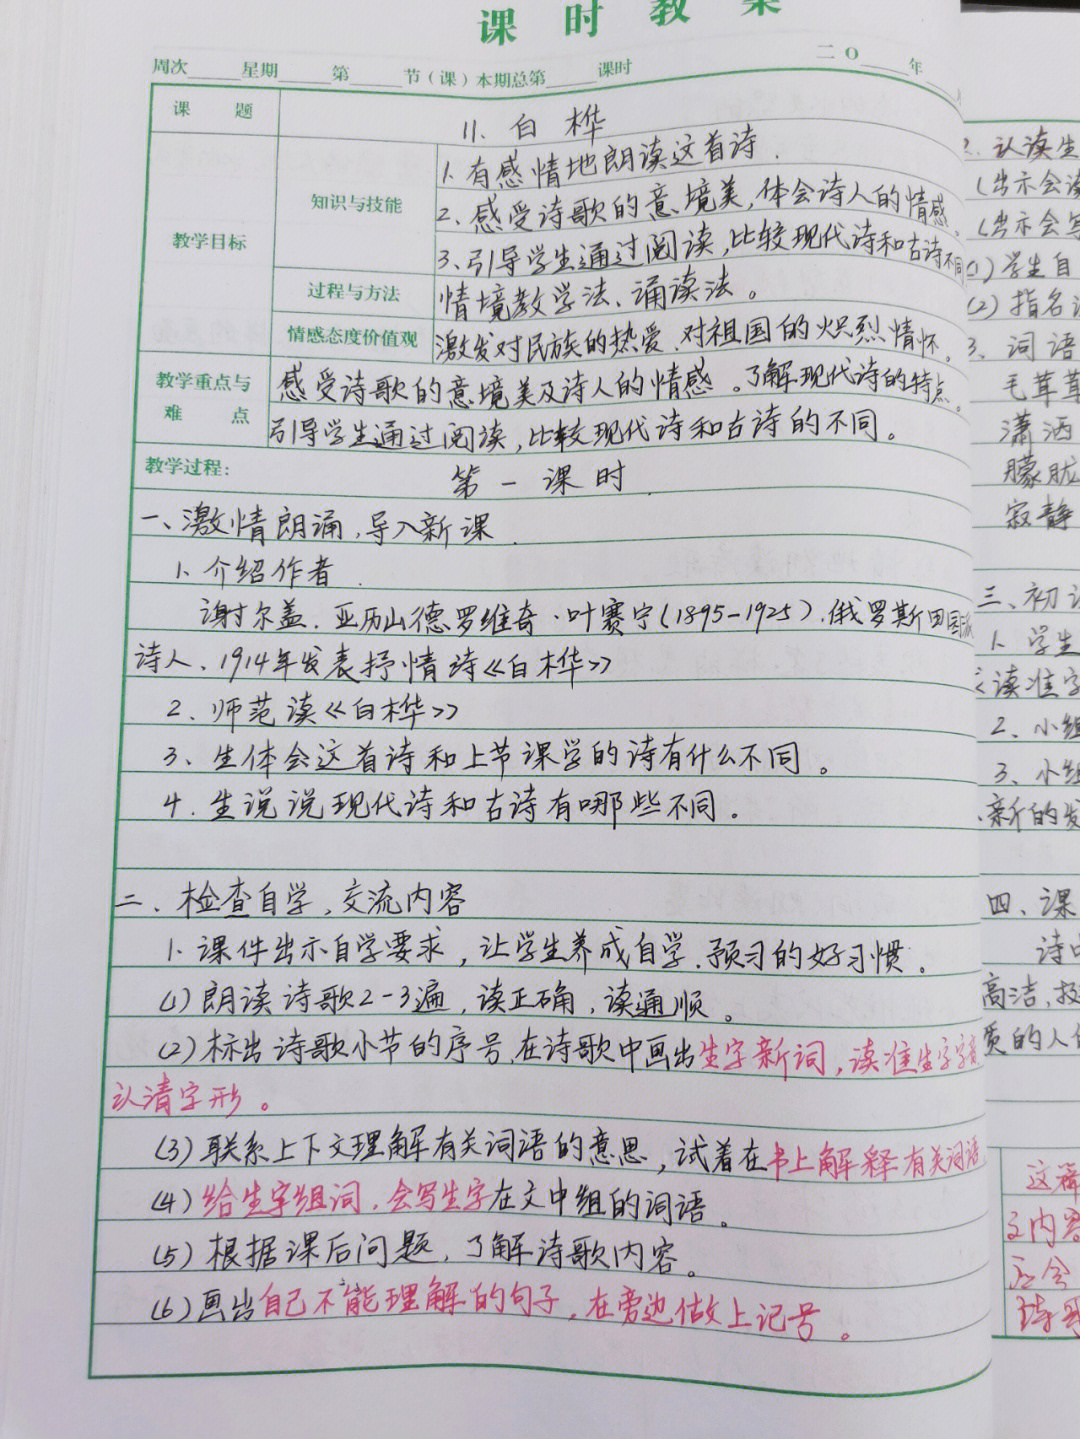 课 时 教 案
二〇 年
周次 星期 第 节（课）本期总第 课时
课 题
11. 白桦
教学目标
知识与技能
1. 有感情地朗读这首诗.
2. 感受诗歌的意境美,体会诗人的情感。
3. 引导学生通过阅读,比较现代诗和古诗不同
过程与方法
情境教学法、诵读法。
情感态度价值观
激发对民族的热爱 对祖国的炽烈情怀.
教学重点与
难 点
感受诗歌的意境美及诗人的情感。了解现代诗的特点。
引导学生通过阅读,比较现代诗和古诗的不同。
教学过程:
第 一 课 时
一、激情朗诵,导入新课.
1. 介绍作者.
谢尔盖.亚历山德罗维奇·叶赛宁(1895-1925).俄罗斯田园派
诗人、1914年发表抒情诗《白桦》
2. 师范读《白桦》
3、生体会这首诗和上节课学的诗有什么不同。
4. 生说说现代诗和古诗有哪些不同。
二、检查自学,交流内容
1. 课件出示自学要求,让学生养成自学.预习的好习惯。
(1)朗读诗歌2-3遍,读正确,读通顺。
(2)标出诗歌小节的序号.在诗歌中画出生字新词,读准生字字音
认清字形。
(3)联系上下文理解有关词语的意思,试着在书上解释有关词语
(4)给生字组词,会写生字在文中组的词语。
(5)根据课后问题,了解诗歌内容。
(6)画出自己不能理解的句子,在旁边做上记号。
2. 认读生
(出示会读
(出示会写
(1)学生自
(2)指名
3、词语
毛茸茸
潇洒
朦胧
寂静
三、初
1. 学生
读准字
2、小组
3、小组
新的发
四、课
诗中
高洁,
质的人
这
内容
会
诗